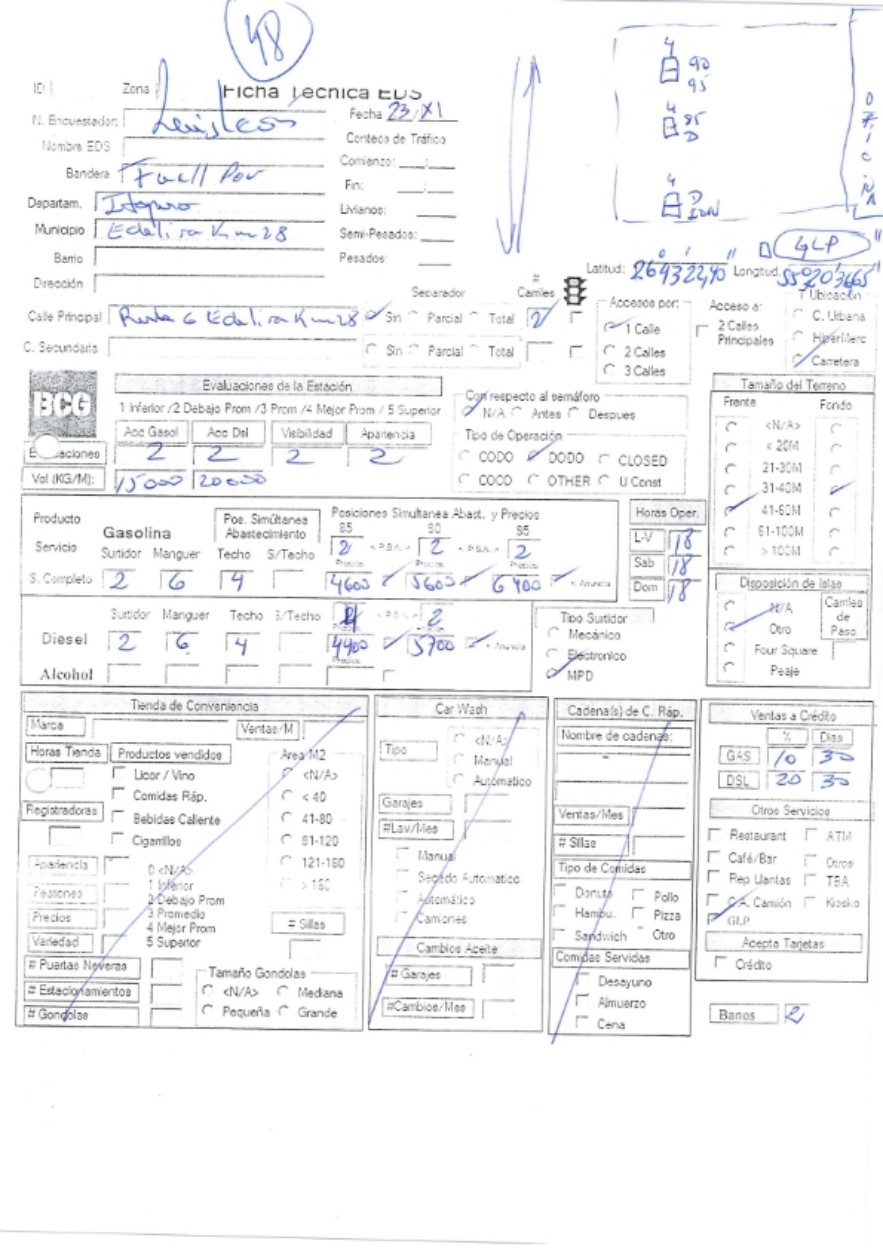 48
ID Zona Ficha Técnica EDS
N. Encuestador: Luis León Fecha 23/XI
Nombre EDS Conteos de Tráfico
Bandera Fuell Par Comienzo: __:__
Departam. Itapua Fin: __:__
Municipio Edelira Km 28 Livianos:
Semi-Pesados:
Barrio Pesados:
Dirección
4 90 95
4 85 D
4 D
OFICINA
GLP
Latitud: 26°43'22,40" Longitud:
Calle Principal Ruta 6 Edelira Km 28
Separador Sin Parcial Total
# Carriles 2
C. Secundaria Sin Parcial Total
Accesos por: 1 Calle 2 Calles 3 Calles
Acceso a: 2 Calles Principales
T Ubicación C. Urbana Hiper/Merc Carretera
BCG
Evaluaciones de la Estación
1 Inferior /2 Debajo Prom /3 Prom /4 Mejor Prom / 5 Superior
Acc Gasol Acc Dsl Visibilidad Apariencia
Evaluaciones 2 2 2 2
Vol (KG/M): 15000 20000
Con respecto al semáforo
N/A Antes Despues
Tipo de Operación
CODO DODO CLOSED
COCO OTHER U Const
Tamaño del Terreno
Frente Fondo
<N/A>
< 20M
21-30M
31-40M
41-60M
61-100M
> 100M
Producto Gasolina Pos. Simúltanea Abastecimiento Posiciones Simultanea Abast. y Precios
Servicio Surtidor Manguer Techo S/Techo 85 90 95
2 < P.S.A. > 2 < P.S.A. > 2
Precios Precios Precios
S. Completo 2 6 4 4600 5600 6400 < Anuncia
Horas Oper.
L-V 18
Sab 18
Dom 18
Surtidor Manguer Techo S/Techo < P.S.A. > 2
Diesel 2 6 4 4400 5700 < Anuncia
Alcohol
Tipo Surtidor
Mecánico
Electronico
MPD
Disposición de Islas
N/A
Otro
Four Square
Peaje
Carriles de Paso
Tienda de Conveniencia
Marca Ventas/M
Horas Tienda Productos vendidos Area M2
Licor / Vino <N/A>
Comidas Ráp. < 40
Registradoras Bebidas Caliente 41-80
Cigarrillos 81-120
Apariencia 0 <N/A> 121-160
1 Inferior > 160
Peatones 2 Debajo Prom
Precios 3 Promedio
4 Mejor Prom # Sillas
Variedad 5 Superior
# Puertas Neveras Tamaño Gondolas
# Estacionamientos <N/A> Mediana
# Gondolas Pequeña Grande
Car Wash
Tipo <N/A>
Manual
Automatico
Garajes
#Lav/Mes
Manual
Secado Automatico
Automático
Camiones
Cambios Aceite
# Garajes
#Cambios/Mes
Cadena(s) de C. Ráp.
Nombre de cadenas:
Ventas/Mes
# Sillas
Tipo de Comidas
Donuts Pollo
Hambu. Pizza
Sandwich Otro
Comidas Servidas
Desayuno
Almuerzo
Cena
Ventas a Crédito
% Dias
GAS 10 30
DSL 20 30
Otros Servicios
Restaurant ATM
Café/Bar Otros
Rep Llantas TBA
C.A. Camión Kiosko
GLP
Acepta Tarjetas
Crédito
Banos 2